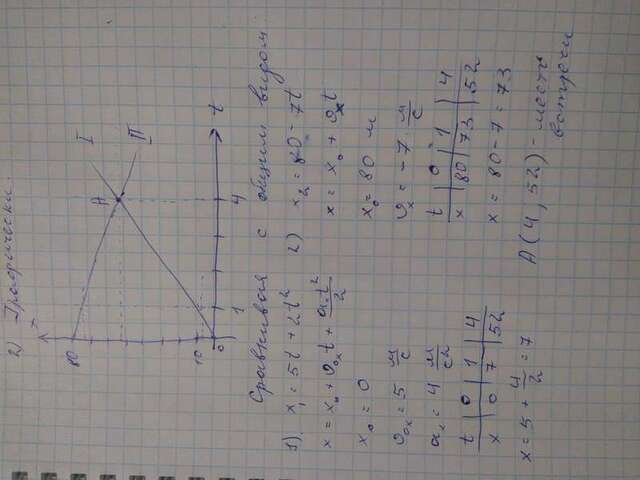 2) Графически.
x
80
10
0
1
4
t
A
I
II
Сравнивая с общим видом
1) x₁ = 5t + 2t²
x = x₀ + v₀ₓt + aₓt²/2
x₀ = 0
v₀ₓ = 5 м/с
aₓ = 4 м/с²
t | 0 | 1 | 4
x | 0 | 7 | 52
x = 5 + 4/2 = 7
2) x₂ = 80 - 7t
x = x₀ + vₓt
x₀ = 80 м
vₓ = -7 м/с
t | 0 | 1 | 4
x | 80 | 73 | 52
x = 80 - 7 = 73
A(4, 52) - место
встречи